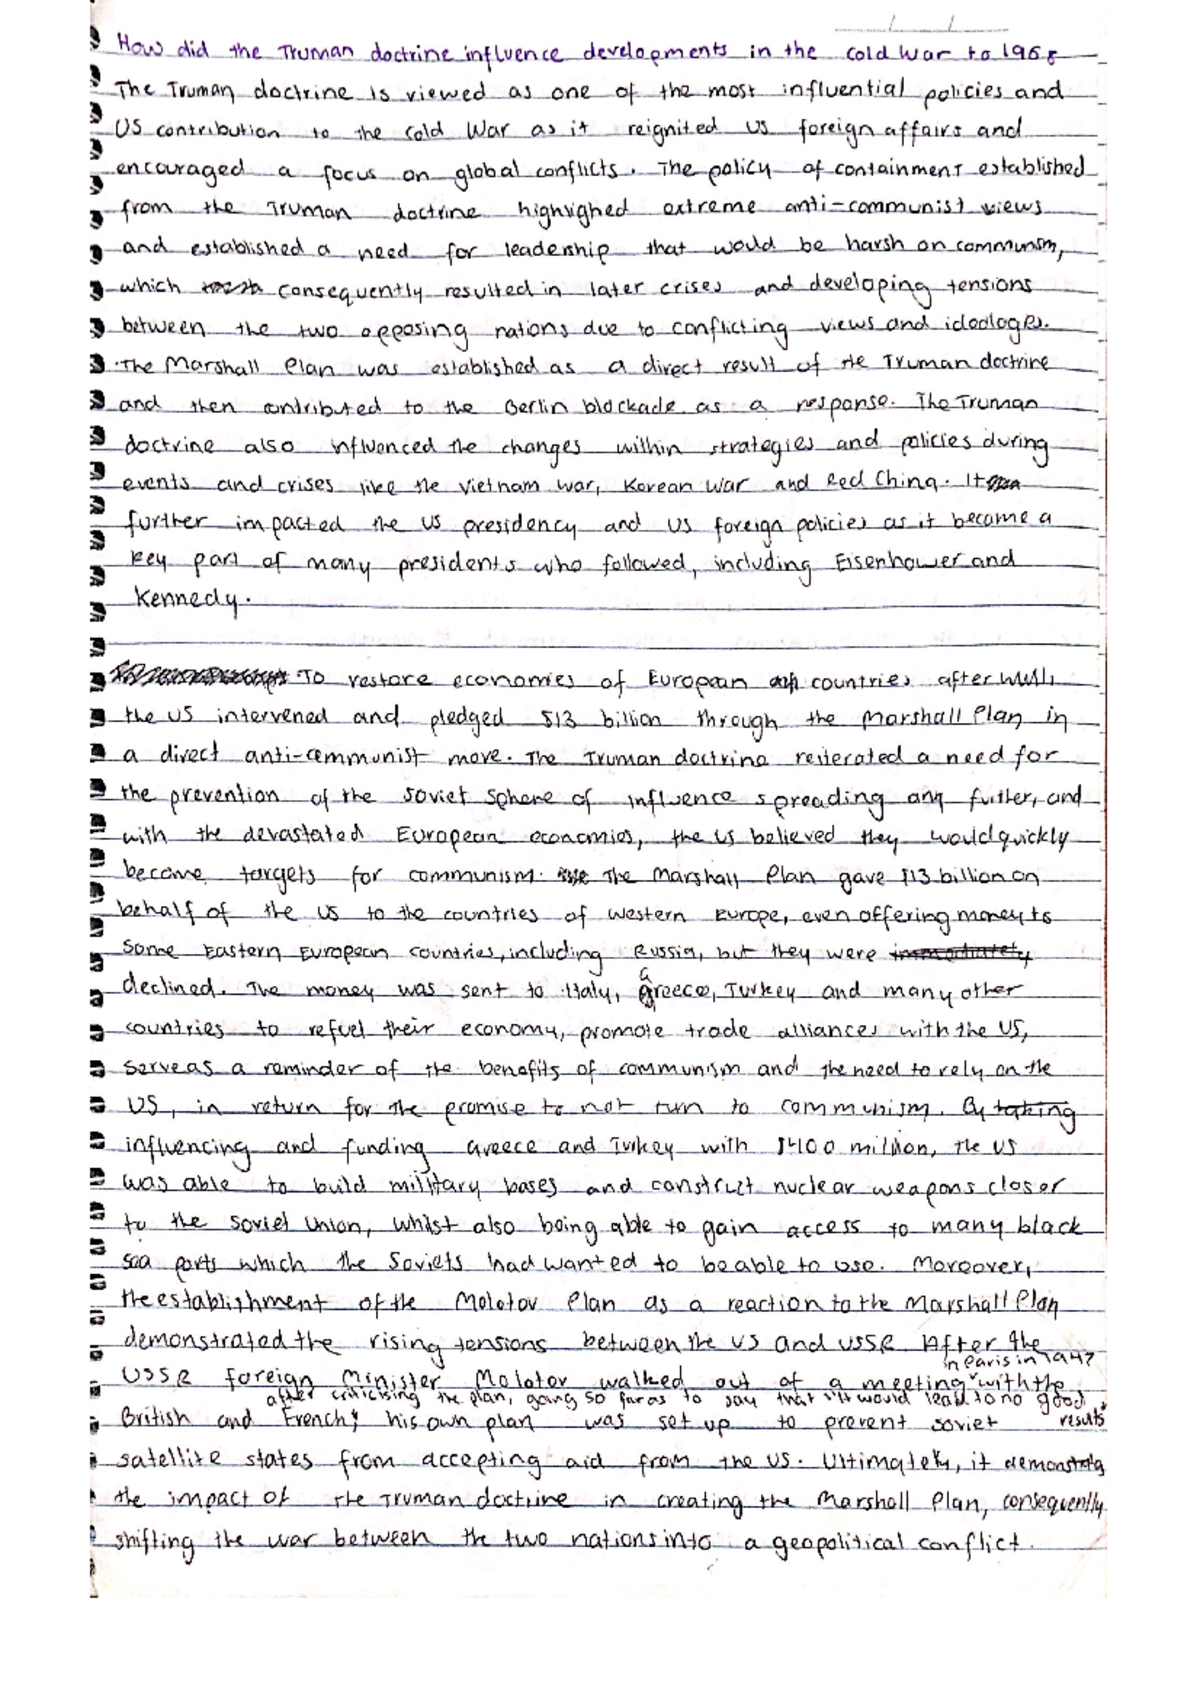 How did the Truman doctrine influence developments in the cold War to 1968
The Truman doctrine is viewed as one of the most influential policies and
US contribution to the cold War as it reignited us foreign affairs and
encouraged a focus on global conflicts. The policy of containment established
from the Truman doctrine highlighed extreme anti-communist views
and established a need for leadership that would be harsh on communism,
which consequently resulted in later crises and developing tensions
between the two opposing nations due to conflicting views and ideologies.
The Marshall Plan was established as a direct result of the Truman doctrine
and then contributed to the Berlin blockade as a response. The Truman
doctrine also influenced the changes within strategies and policies during
events and crises like the Vietnam war, Korean War and Red China. It
further impacted the US presidency and US foreign policies as it became a
key part of many presidents who followed, including Eisenhower and
Kennedy.
To restore economies of European countries after WWII,
the US intervened and pledged $13 billion through the Marshall Plan in
a direct anti-communist move. The Truman doctrine reiterated a need for
the prevention of the Soviet Sphere of influence spreading any further, and
with the devastated European economies, the US believed they would quickly
become targets for communism. The Marshall Plan gave $13 billion on
behalf of the US to the countries of Western Europe, even offering money to
some Eastern European countries, including Russia, but they were immediately
declined. The money was sent to Italy, Greece, Turkey and many other
countries to refuel their economy, promote trade alliances with the US,
serve as a reminder of the benefits of communism and the need to rely on the
US, in return for the promise to not turn to communism. By taking
influencing and funding Greece and Turkey with $400 million, the US
was able to build military bases and construct nuclear weapons closer
to the Soviet Union, whilst also being able to gain access to many black
sea ports which the Soviets had wanted to be able to use. Moreover,
the establishment of the Molotov Plan as a reaction to the Marshall Plan
demonstrated the rising tensions between the US and USSR. After the
in Paris in 1947
USSR foreign Minister Molotov walked out of a meeting with the
after criticising the plan, going so far as to say that "it would lead to no good
British and French, his own plan was set up to prevent soviet results"
satellite states from accepting aid from the US. Ultimately, it demonstrates
the impact of the Truman doctrine in creating the Marshall Plan, consequently
shifting the war between the two nations into a geopolitical conflict.